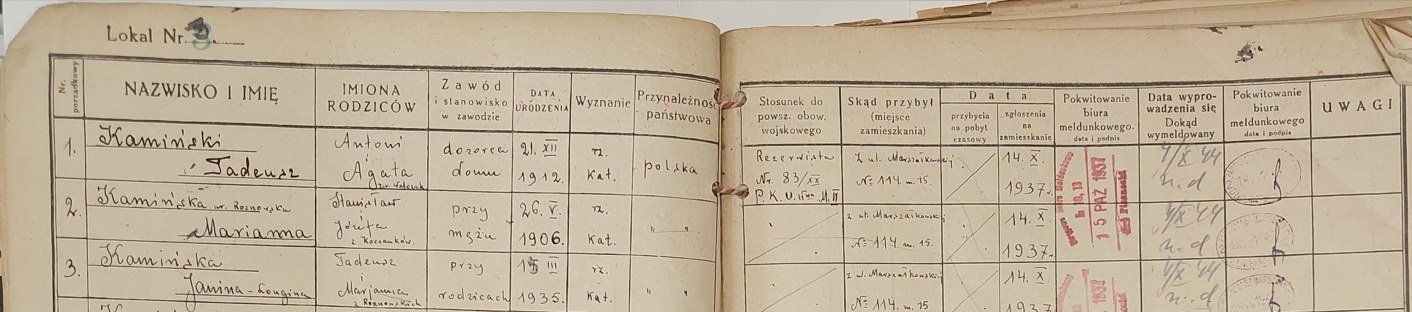 Lokal Nr.
Nr. porządkowy
NAZWISKO I IMIĘ
IMIONA RODZICÓW
Zawód i stanowisko w zawodzie
DATA URODZENIA
Wyznanie
Przynależność państwowa
Stosunek do powsz. obow. wojskowego
Skąd przybył (miejsce zamieszkania)
Data
przybycia na pobyt czasowy
zgłoszenia na zamieszkanie
Pokwitowanie biura meldunkowego. data i podpis
Data wyprowadzenia się Dokąd wymeldowany
Pokwitowanie biura meldunkowego data i podpis
UWAGI
1. Kamiński Antoni dozorca 21. XII rz. polska Rezerwista z ul. Marszałkowskiej 14. X.
Tadeusz Agata domu 1912. Kat. Nr. 83/XX № 114 m. 15. 1937.
P. K. U. M. II
15 PAŹ 1937
2. Kamińska Stanisław przy 26. V. rz. z ul. Marszałkowskiej 14. X
Marianna Józefa mężu 1906. Kat. № 114 m. 15. 1937.
3. Kamińska Tadeusz przy 15 III rz. z ul. Marszałkowskiej 14. X.
Janina-Longina Marjanna rodzicach 1935. Kat. № 114. m. 15 1937
z Roznowskich